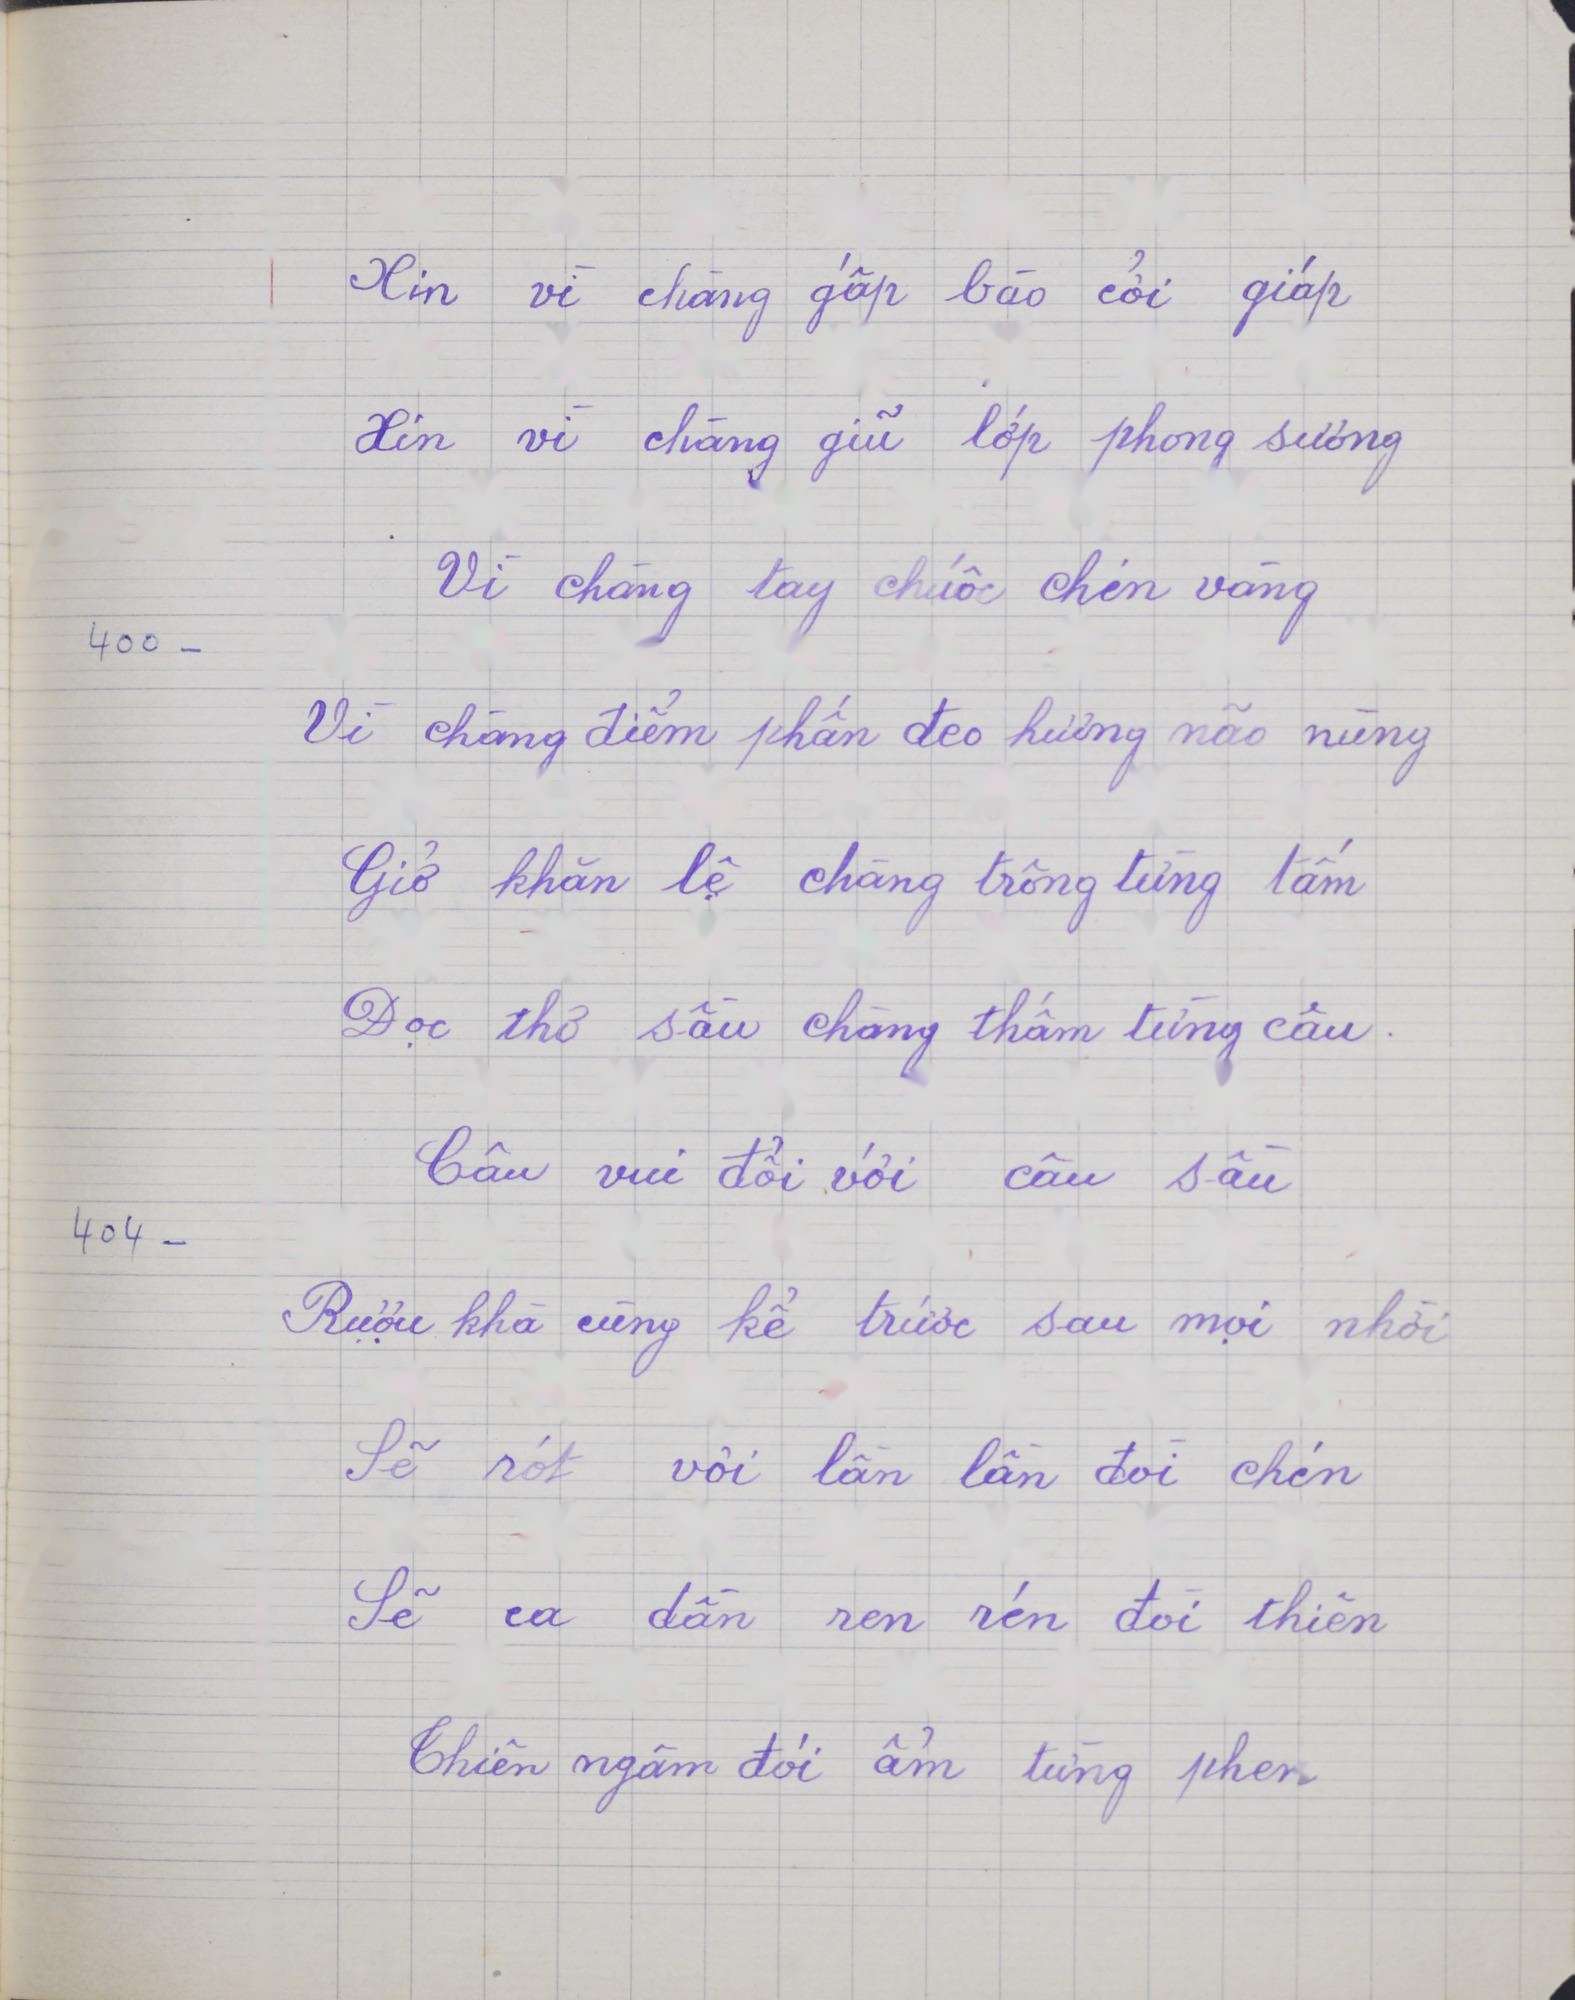 Xin vì chàng gấp bào cởi giáp
Xin vì chàng giũ lớp phong sương
Vì chàng tay chuốc chén vàng
400 -
Vì chàng điểm phấn đeo hương não nùng
Giở khăn lệ chàng trông từng tấm
Đọc thơ sầu chàng thấm từng câu.
Câu vui đổi với câu sầu
404 -
Rượu khà cùng kể trước sau mọi nhời
Sẽ rót vơi lần lần đòi chén
Sẽ ca dần ren rén đòi thiên
Thiên ngâm đối ẩm từng phen